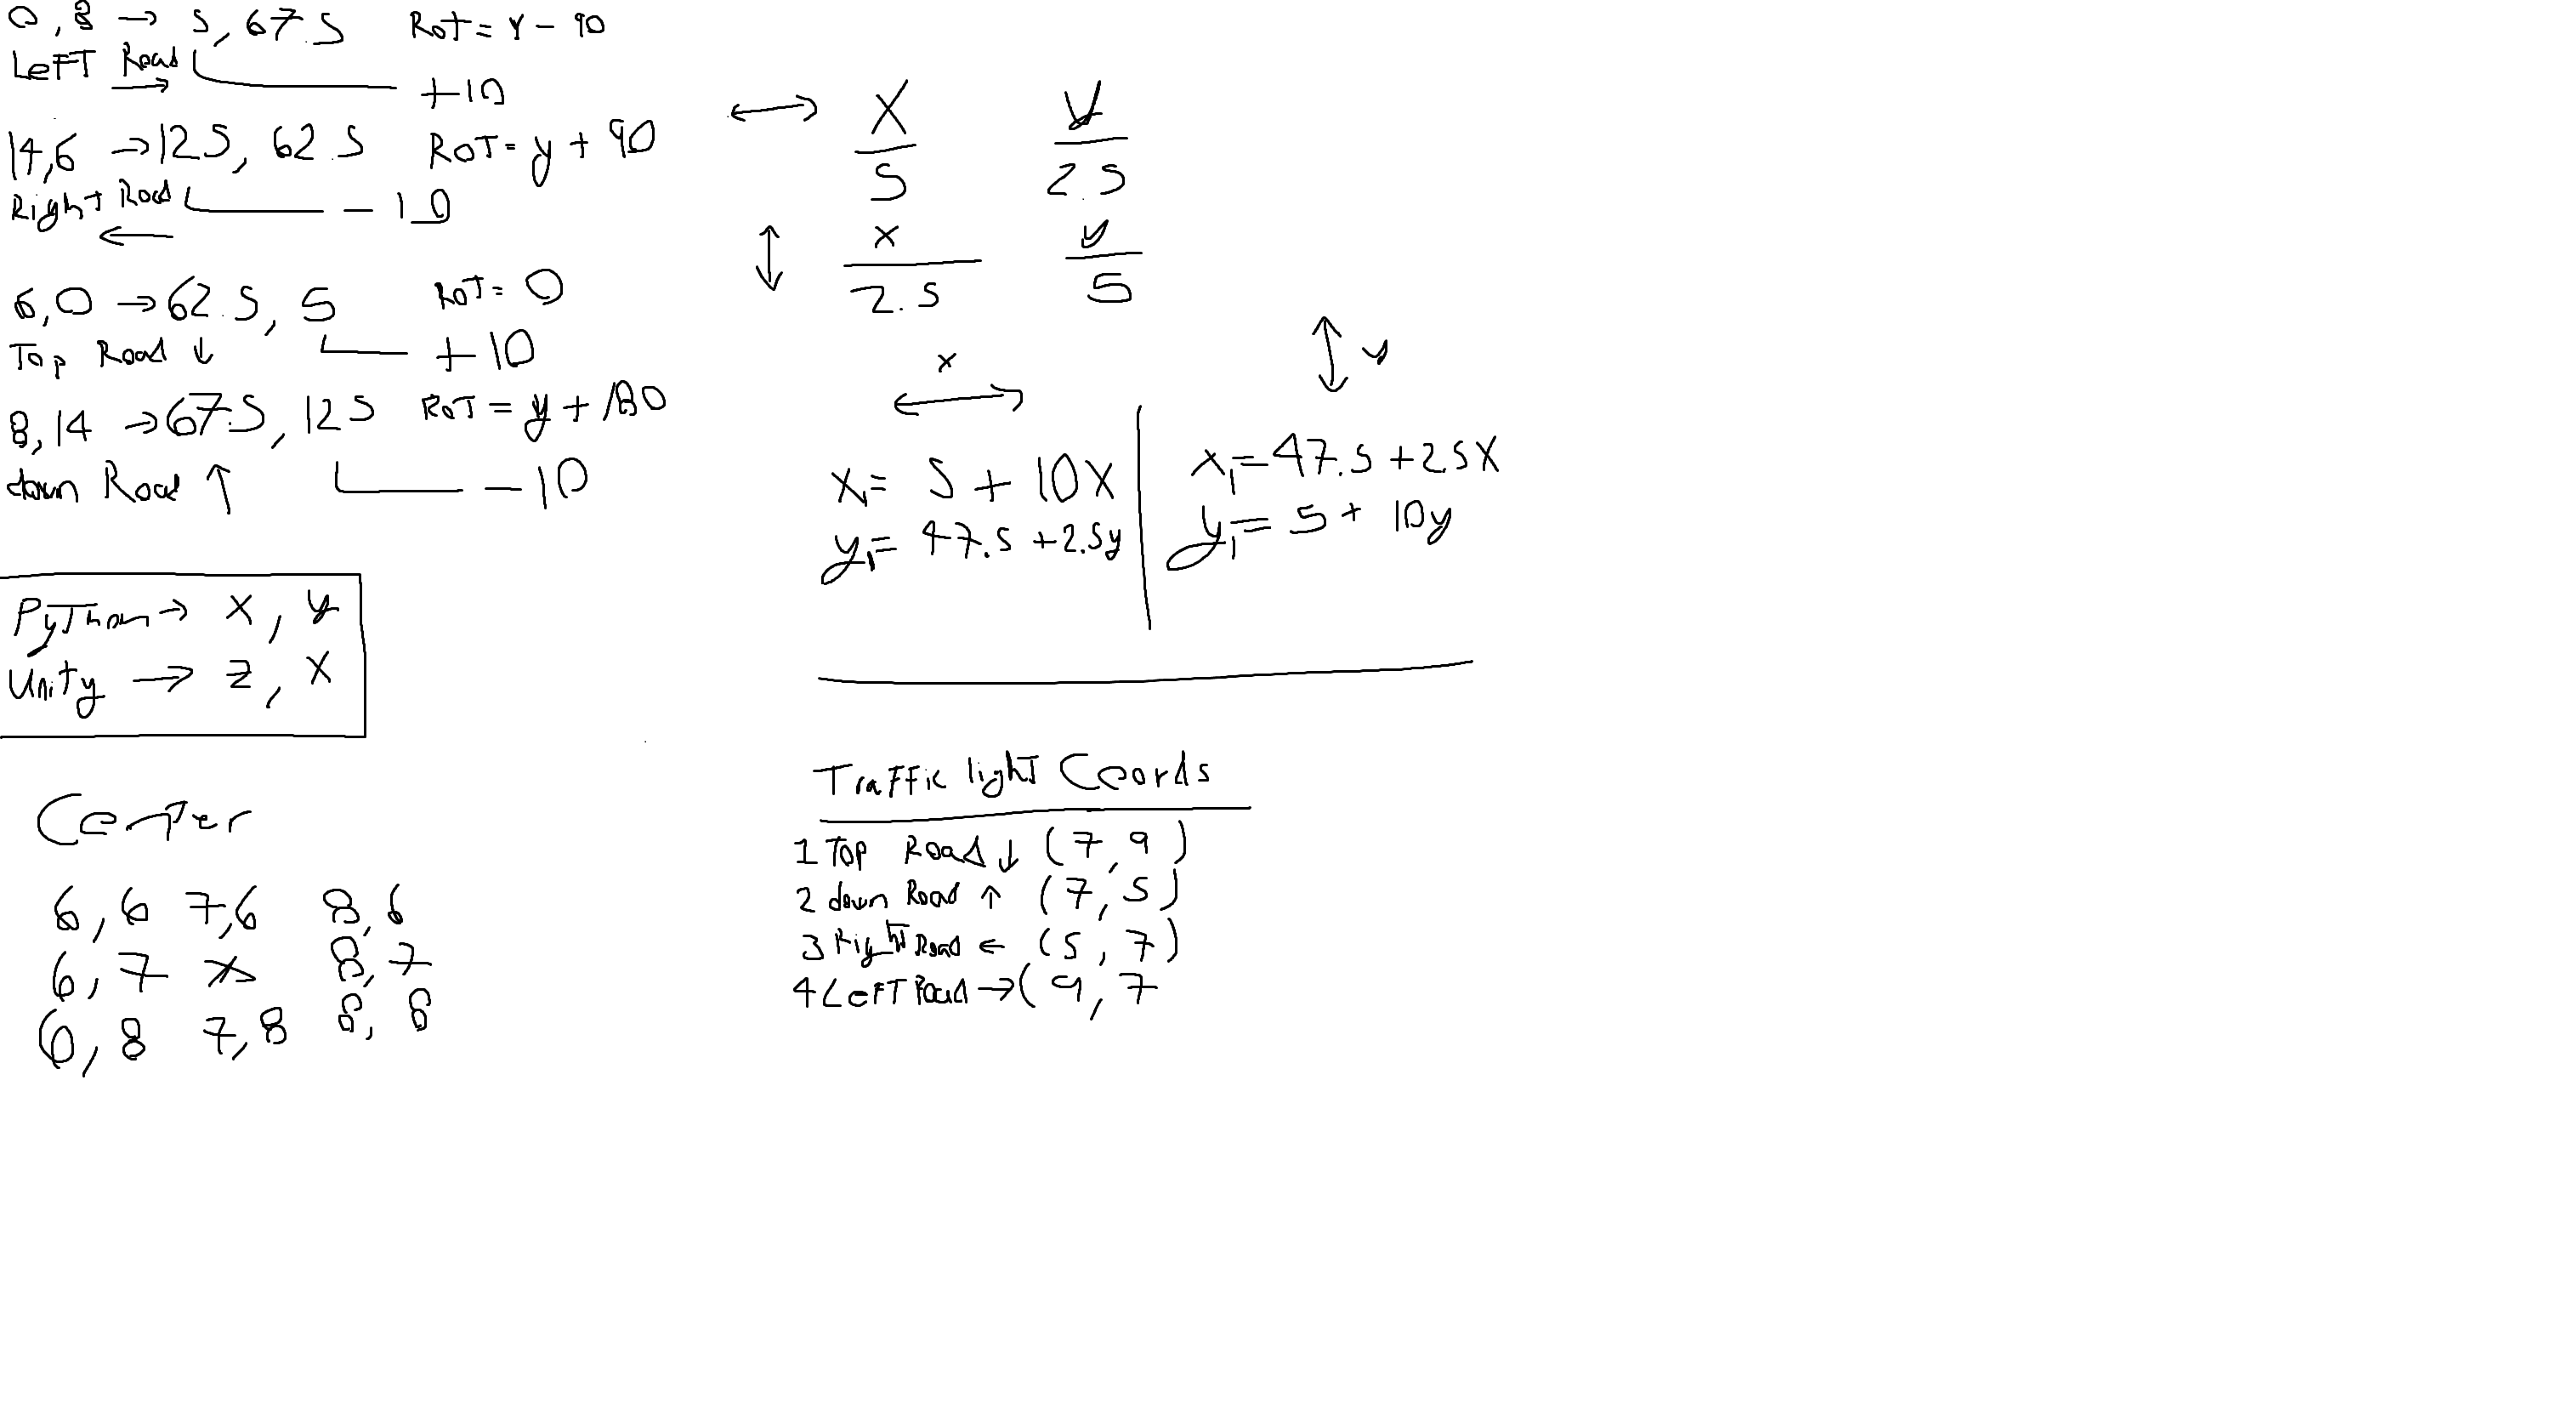 0,8 → 5,67.5 ROT = Y - 90
LeFT Road → +10
14,6 → 125, 62.5 ROT = y + 90
Right Road ← - 10
6,0 → 62.5, 5 ROT = 0
Top Road ↓ + 10
8,14 → 67.5, 125 ROT = y + 180
down Road ↑ - 10
PyThon → x, y
Unity → z, X
CenTer
6,6 7,6 8,6
6,7 x 8,7
6,8 7,8 8,8
↔ X/5 y/2.5
↕ x/2.5 y/5
x ↔
x₁= 5 + 10X
y₁= 47.5 + 2.5y
↕ y
x₁= 47.5 + 2.5X
y₁= 5 + 10y
Traffic lighT Coords
1 Top Road ↓ (7,9)
2 down Road ↑ (7,5)
3 RighT Road ← (5,7)
4 LeFT Road → (9,7